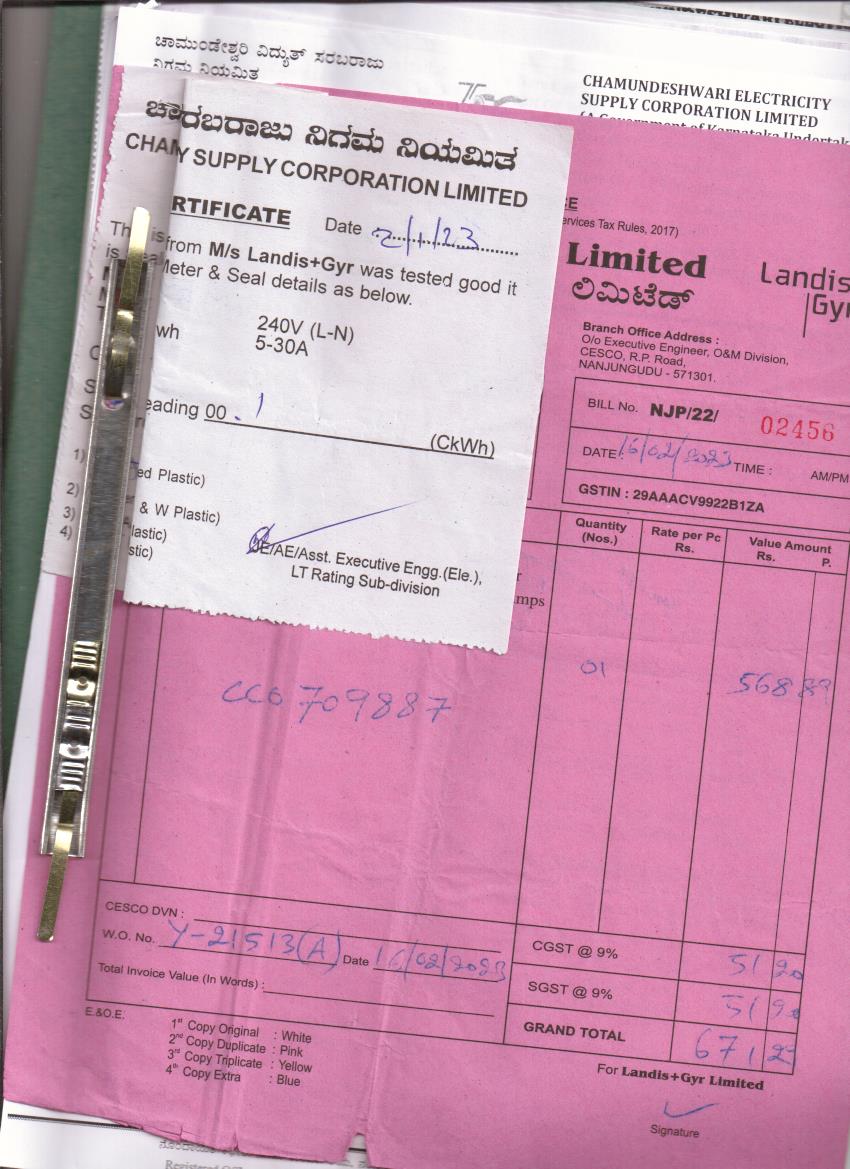 ಚಾಮುಂಡೇಶ್ವರಿ ವಿದ್ಯುತ್ ಸರಬರಾಜು
ನಿಗಮ ನಿಯಮಿತ
CHAMUNDESHWARI ELECTRICITY
SUPPLY CORPORATION LIMITED
(A Government of Karnataka Undertak
ರಬರಾಜು ನಿಗಮ ನಿಯಮಿತ
CHAM
Y SUPPLY CORPORATION LIMITED
RTIFICATE
Date 2/1/23
from M/s Landis+Gyr was tested good it
Meter & Seal details as below.
wh
240V (L-N)
5-30A
eading 00.1
(CkWh)
1)
ed Plastic)
2)
& W Plastic)
3)
lastic)
4)
stic)
JE/AE/Asst. Executive Engg.(Ele.),
LT Rating Sub-division
CE
ervices Tax Rules, 2017)
Limited
ಲಿಮಿಟೆಡ್
Landis
Gyr
Branch Office Address :
O/o Executive Engineer, O&M Division,
CESCO, R.P. Road,
NANJUNGUDU - 571301.
BILL No. NJP/22/ 02456
DATE: 16/02/2023 TIME : AM/PM
GSTIN : 29AAACV9922B1ZA
Quantity (Nos.) Rate per Pc Rs. Value Amount Rs. P.
mps
CCO709887 01 568 89
CESCO DVN :
W.O. No. Y-21513(A) Date 16/02/2023
Total Invoice Value (In Words) :
CGST @ 9% 51 20
SGST @ 9% 51 20
GRAND TOTAL 671 29
E.&O.E.
1st Copy Original : White
2nd Copy Duplicate : Pink
3rd Copy Triplicate : Yellow
4th Copy Extra : Blue
For Landis+Gyr Limited
Signature